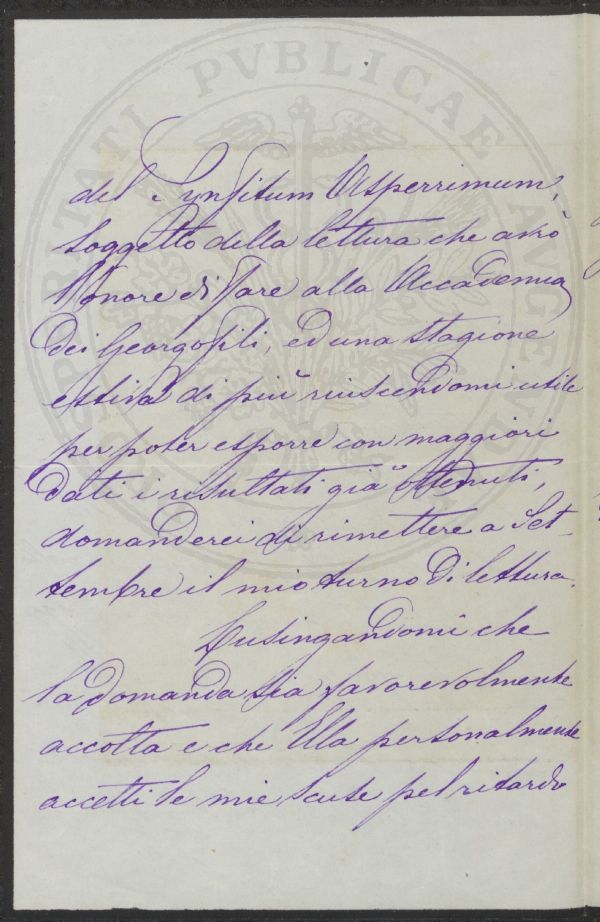 PROSPERITATI PVBLICAE AVGENDAE
del Synfitum Asperrimum,
soggetto della lettura che avrò
l'onore di fare alla Accademia
dei Georgofili, ed una stagione
estiva di più riuscendomi utile
per poter esporre con maggiori
dati i risultati già ottenuti,
domanderei di rimettere a Set-
tembre il mio turno di lettura.
Lusingandomi che
la domanda sia favorevolmente
accolta e che Ella personalmente
accetti le mie scuse pel ritardo